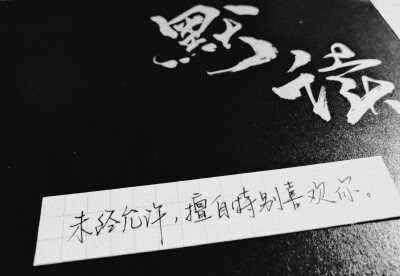 默读
未经允许,擅自特别喜欢你。